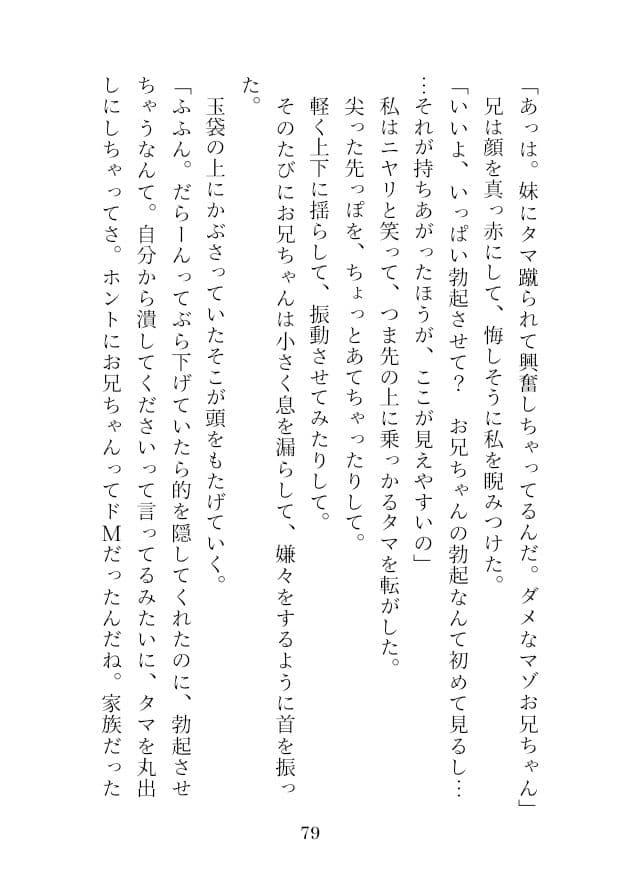 「あっは。妹にタマ蹴られて興奮しちゃってるんだ。ダメなマゾお兄ちゃん」
兄は顔を真っ赤にして、悔しそうに私を睨みつけた。
「いいよ、いっぱい勃起させて？　お兄ちゃんの勃起なんて初めて見るし…
…それが持ちあがったほうが、ここが見えやすいの」
私はニヤリと笑って、つま先の上に乗っかるタマを転がした。
尖った先っぽを、ちょっとあてちゃったりして。
軽く上下に揺らして、振動させてみたりして。
そのたびにお兄ちゃんは小さく息を漏らして、嫌々をするように首を振っ
た。
玉袋の上にかぶさっていたそこが頭をもたげていく。
「ふふん。だらーんってぶら下げていたら的を隠してくれたのに、勃起させ
ちゃうなんて。自分から潰してくださいって言ってるみたいに、タマを丸出
しにしちゃってさ。ホントにお兄ちゃんってドMだったんだね。家族だった
79